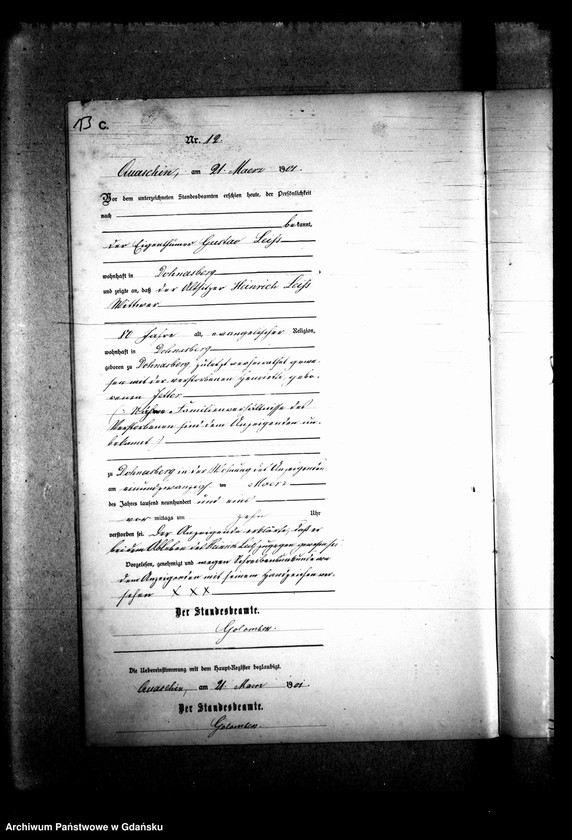 13 C.
Nr. 12.
Quaschin, am 21. Maerz 1901.
Vor dem unterzeichneten Standesbeamten erschien heute, der Persönlichkeit
nach
bekannt,
der Eigenthümer Gustav Leiß
wohnhaft in Dohnasberg
und zeigte an, daß der Altsitzer Heinrich Leiß
Wittwer
80 Jahre alt, evangelischer Religion,
wohnhaft in Dohnasberg
geboren zu Dohnasberg zuletzt verheirathet gewe-
sen mit der verstorbenen Henriette gebo-
renen Jetter
(: Nähere Familienverhältnisse des
Verstorbenen sind dem Anzeigenden un-
bekannt :)
zu Dohnasberg in der Wohnung des Anzeigenden
am einundzwanzigsten Maerz
des Jahres tausend neunhundert und eins
vor mittags um zehn Uhr
verstorben sei. Der Anzeigende erklärte, daß er
bei dem Ableben des Leiß zugegen gewesen sei
Vorgelesen, genehmigt und wegen Schreibensunkunde von
dem Anzeigenden mit seinem Handzeichen ver-
sehen X X X
Der Standesbeamte.
Golombek.
Die Uebereinstimmung mit dem Haupt-Register beglaubigt.
Quaschin, am 21. Maerz 1901
Der Standesbeamte.
Golombek.
Archiwum Państwowe w Gdańsku